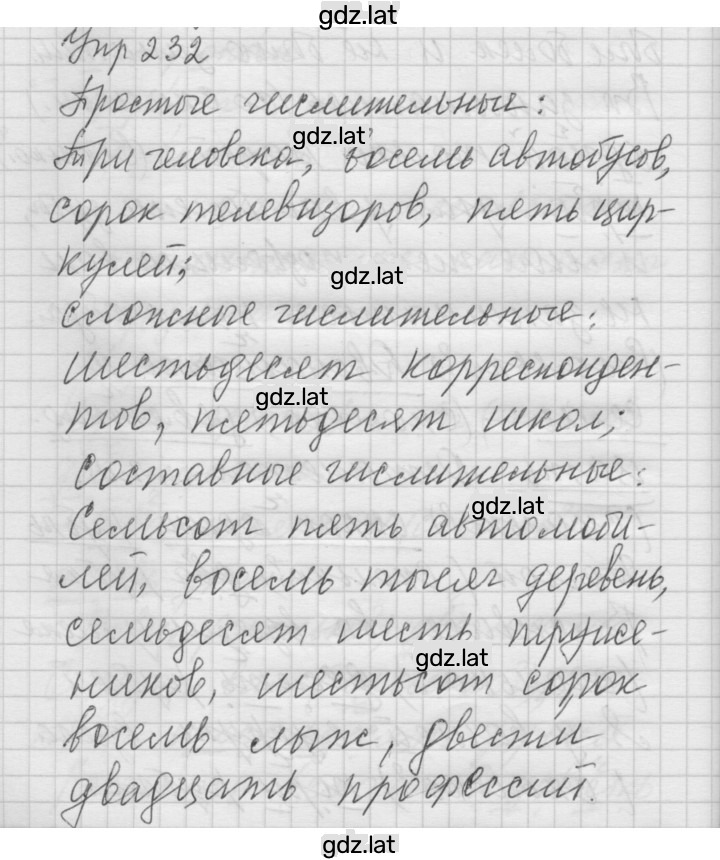 gdz.lat
Упр 232
Простые числительные:
gdz.lat
Три человека, восемь автобусов,
сорок телевизоров, пять цир-
кулей;
gdz.lat
сложные числительные:
шестьдесят корреспонден-
gdz.lat
тов, пятьдесят школ;
Составные числительные:
gdz.lat
Семьсот пять автомоби-
лей, восемь тысяч деревень,
семьдесят шесть труже-
gdz.lat
ников, шестьсот сорок
восемь лыж, двести
двадцать профессий.
gdz.lat